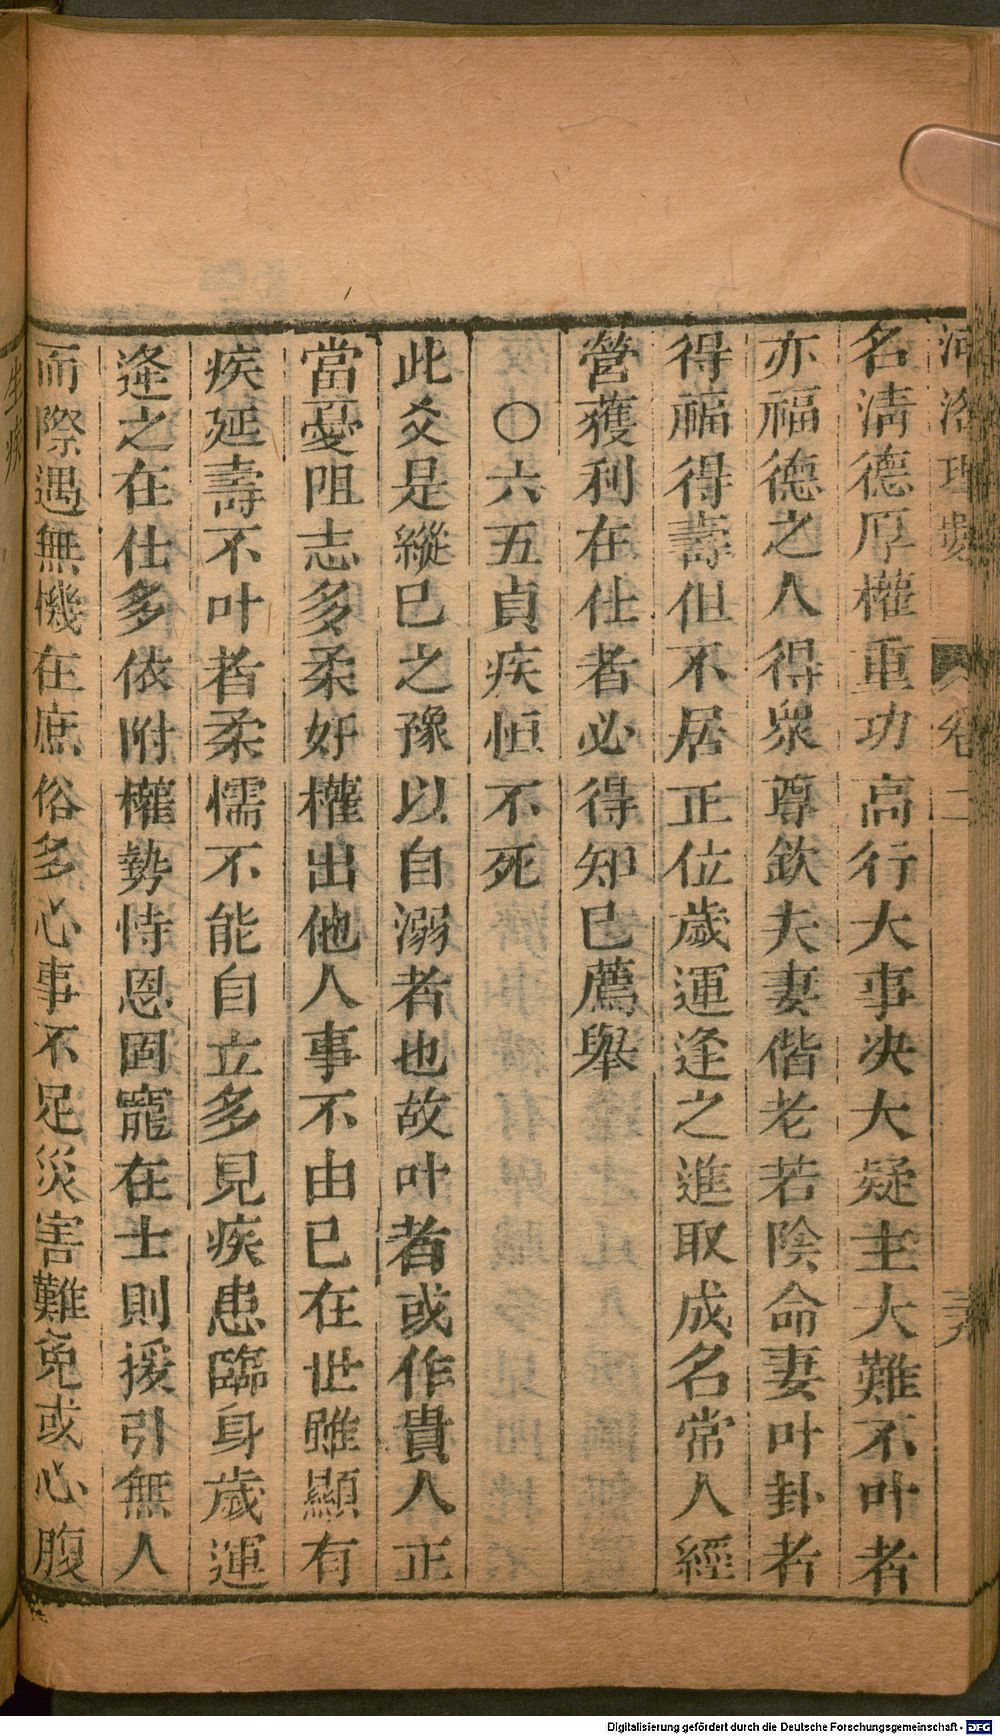 河洛理數 卷二
名清德厚權重功高行大事决大疑主大難不叶者
亦福德之人得衆尊欽夫妻偕老若陰命妻叶卦者
得福得壽但不居正位歲運逢之進取成名常人經
營獲利在仕者必得知巳薦舉
○六五貞疾恒不死
此爻是縱巳之豫以自溺者也故叶者或作貴人正
當憂阻志多柔好權出他人事不由巳在世雖顯有
疾延壽不叶者柔懦不能自立多見疾患臨身歲運
逢之在仕多依附權勢恃恩固寵在士則援引無人
而際遇無機在庶俗多心事不足災害難免或心腹
生疾
Digitalisierung gefördert durch die Deutsche Forschungsgemeinschaft - DFG